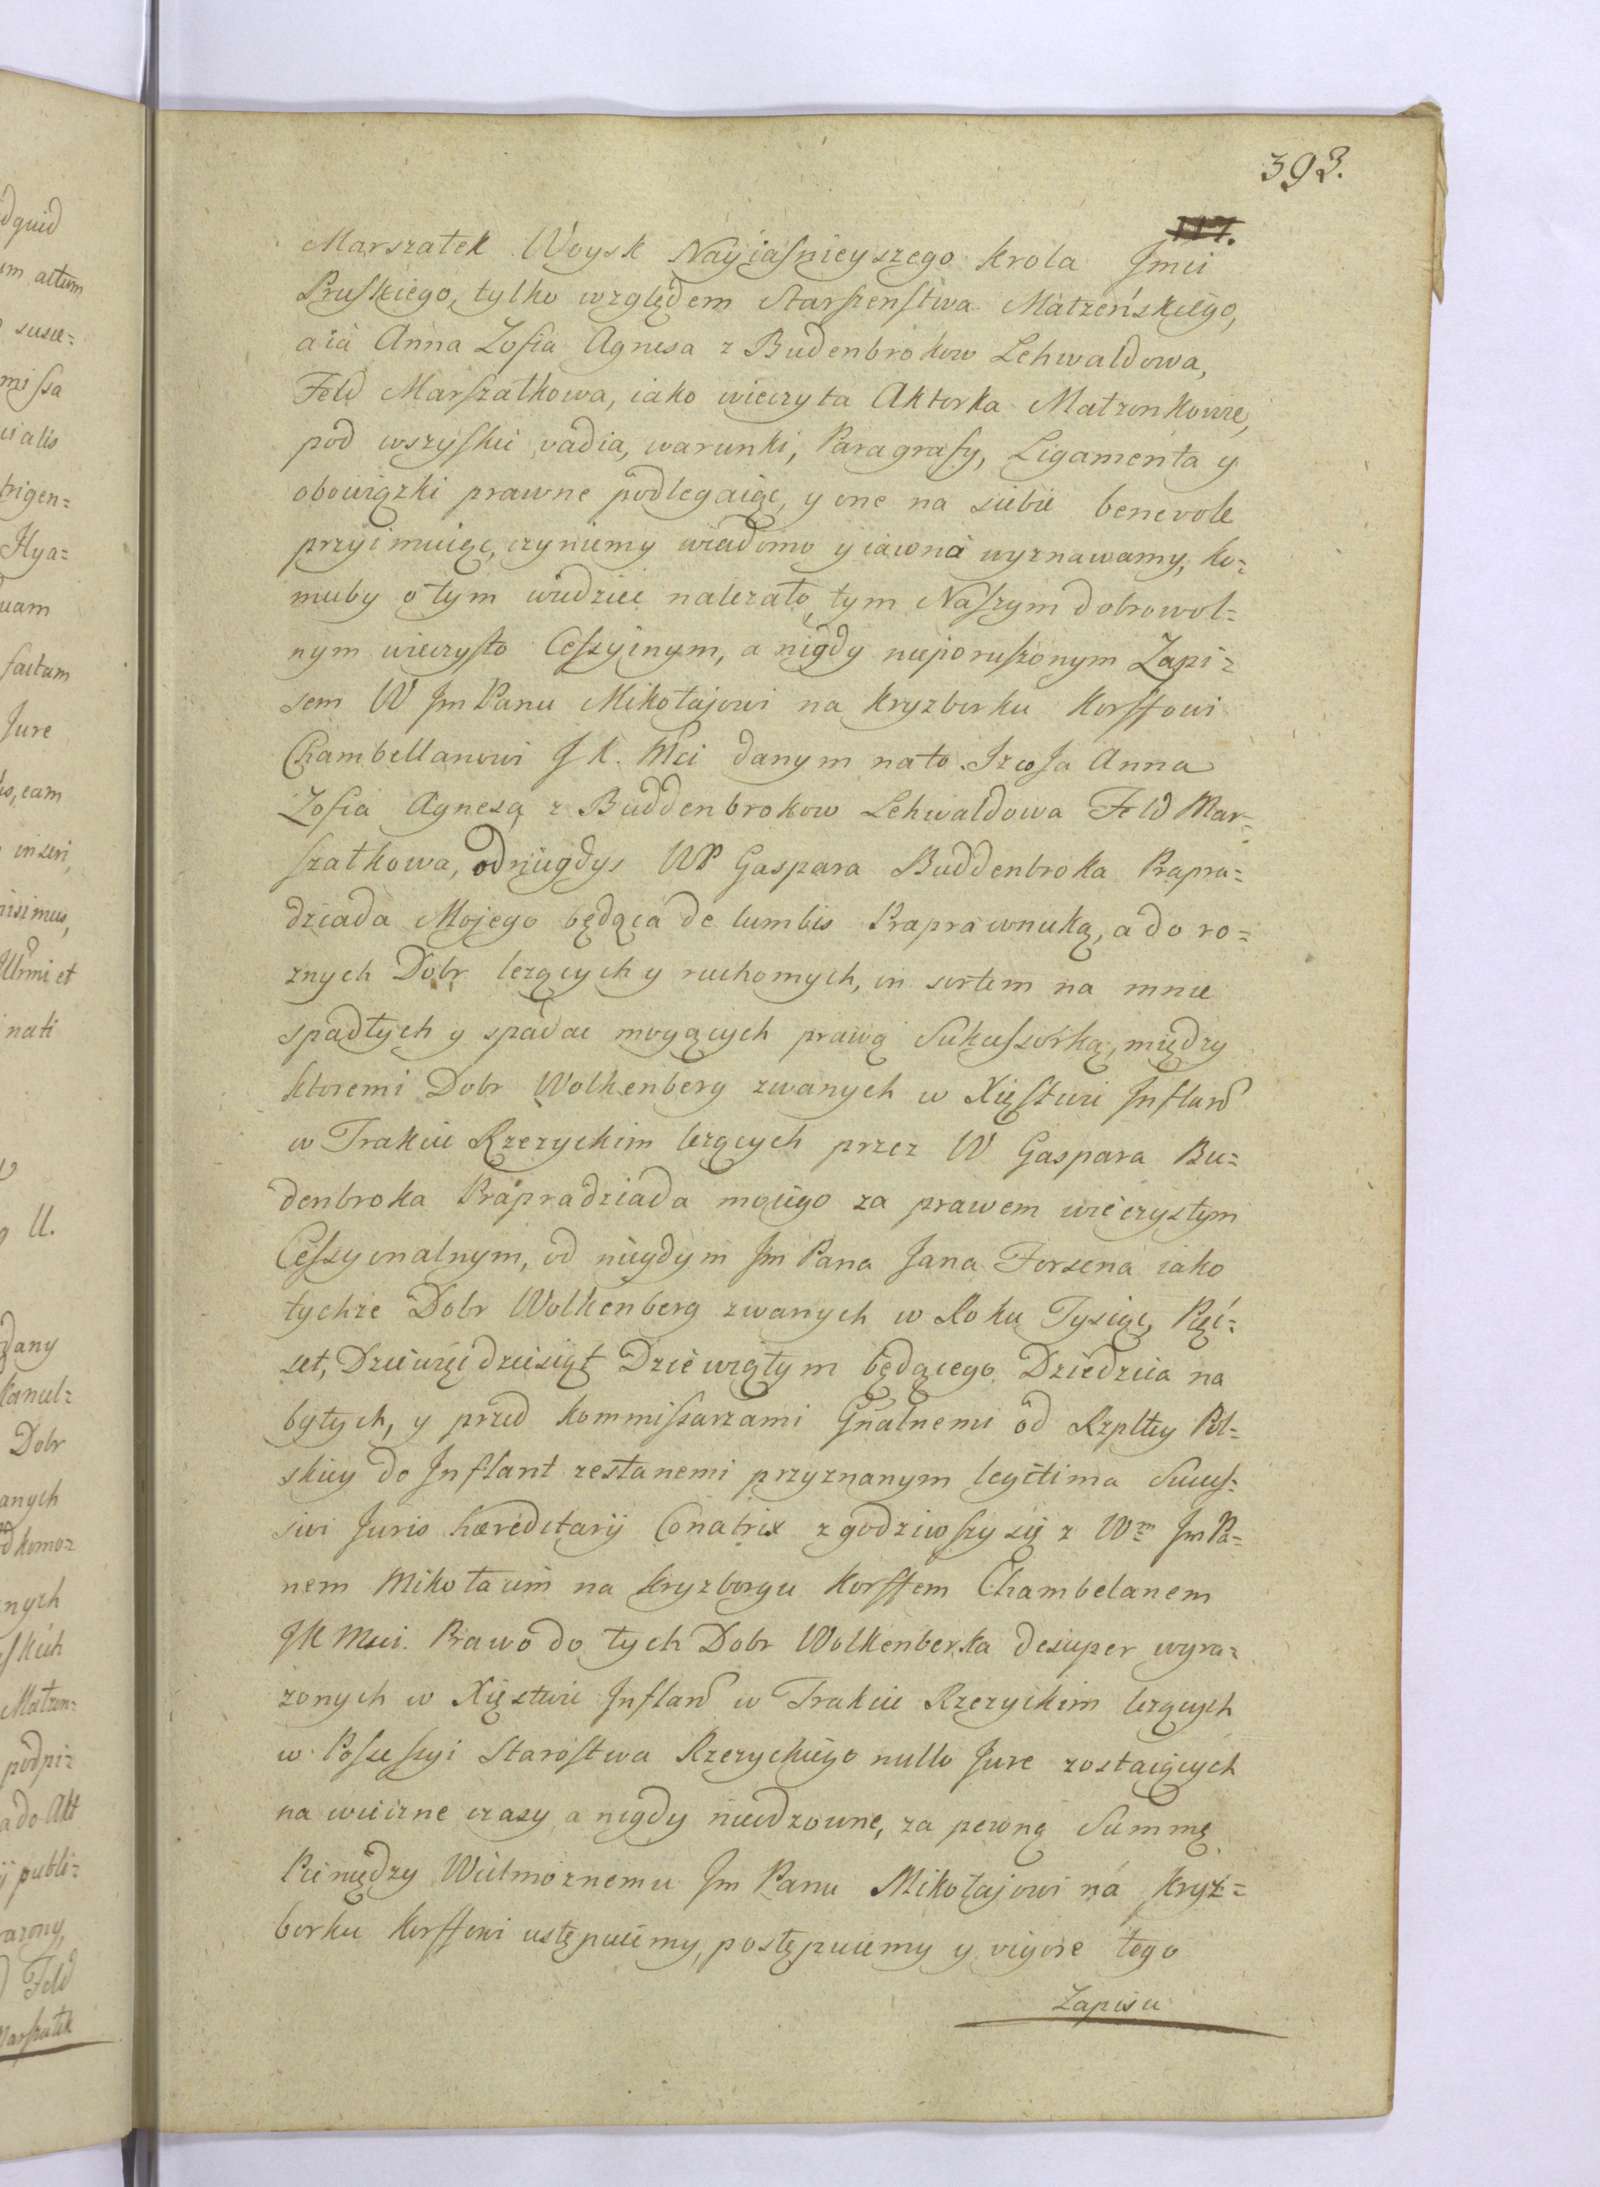 393.
117.
Marszałek Woysk Nayiaśnieyszego Krola Jmci
Pruskiego, tylko względem Starszenstwa Małżeńskiego,
a ia Anna Zofia Agnesa z Budenbrokow Lehwaldowa,
Feld Marszałkowa, iako wieczysta Aktorka Małżonkowie,
pod wszyskie vadia, warunki, Paragrafy, Ligamenta y
obowiązki prawne podlegaiąc, y one na siebie benevole
przyimuiąc, czyniemy wiadomo y iawna wyznawamy, ko=
muby o tym wiedziec nalezało, tym Naszym dobrowol=
nym wieczysto Cessyinym, a nigdy nieporuszonym Zapi=
sem W Jm Panu Mikołajowi na Kryzborku Korffowi
Chambellanowi J K. Mci danym na to. Iz co Ja Anna
Zofia Agnesa z Buddenbrokow Lehwaldowa Feld Mar=
szałkowa, od niegdys WP Gaspara Buddenbroka Prapra=
dziada Mojego będąca de lumbis Praprawnuką, a do ro=
znych Dobr lezących y ruchomych, in sortem na mnie
spadłych y spadac mogących prawą Sukcessorką, między
ktoremi Dobr Wolkenberg zwanych w Xięstwie Infland
w Trakcie Rzezyckim lezących przez W Gaspara Bu=
denbroka Prapradziada moiego za prawem wieczystym
Cessyonalnym, od niegdym Jm Pana Jana Forsena iako
tychze Dobr Wolkenberg zwanych w Roku Tysiąc, Pięc=
set, Dziewięcdziesiąt Dziewiątym będącego Dziedzica na
bytych, y przed Kommissarzami Gnalnemi od Rzpltey Pol=
skiey do Inflant zesłanemi przyznanym legitima Succes=
sivi Juris hæreditarij Conatrix zgodziwszy się z Wm Jm Pa=
nem Mikołaiem na Kryzborgu Korffem Chambelanem
JK Mci. Prawo do tych Dobr Wolkenberka desuper wyra=
zonych w Xięstwie Infland w Trakcie Rzezyckim lezących
w Possessyi Starostwa Rzezyckiego nullo Jure zostaiących
na wieczne czasy a nigdy nieodzowne, za pewną Summę
Pieniędzy Wielmoznemu Jm Panu Mikołajowi na Kryz=
borku Korffowi ustępuiemy, postępuiemy y vigore tego
Zapisu